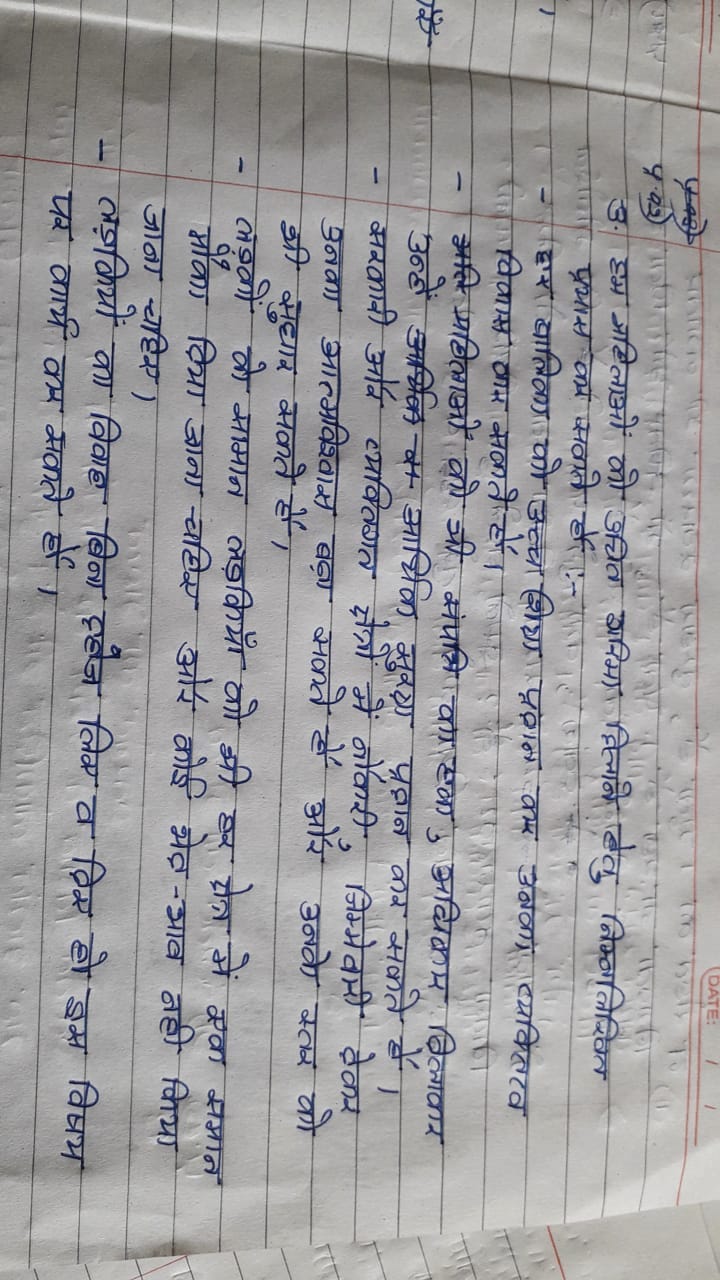 DATE: / /
प्र.3)
उ. हम महिलाओं को उचित गरिमा दिलाने हेतु निम्नलिखित
प्रयास कर सकते हैं :-
- हर बालिका को उच्च शिक्षा प्रदान कर उनका व्यक्तित्व
विकास कर सकते हैं।
- महिलाओं को भी संपत्ति का हक, अधिकार दिलाकर
उन्हें आर्थिक सुरक्षा प्रदान कर सकते हैं।
- सरकारी और व्यक्तिगत क्षेत्रों में नौकरी देकर
उनका आत्मविश्वास बढ़ा सकते हैं और उनके स्तर को
भी सुधार सकते हैं।
- लड़कों के समान लड़कियों को भी हर क्षेत्र में एक समान
मौका दिया जाना चाहिए और कोई भेद-भाव नहीं किया
जाना चाहिए।
- लड़कियों का विवाह बिना दहेज लिए व दिए हो इस विषय
पर कार्य कर सकते हैं।